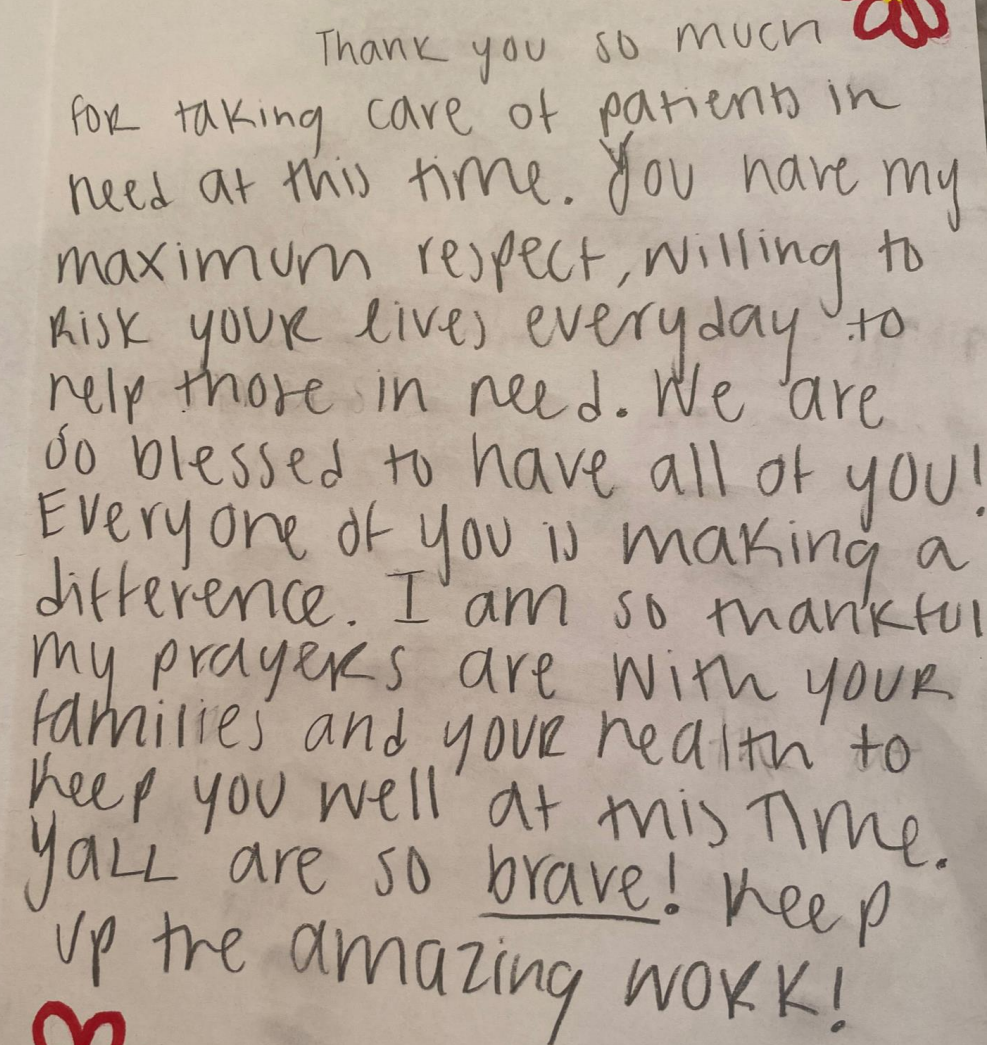 Thank you so much
for taking care of patients in
need at this time. You have my
maximum respect, willing to
Risk your lives everyday to
help those in need. We are
so blessed to have all of you!
Everyone of you is making a
difference. I am so thankful
my prayers are with your
families and your health to
keep you well at this Time.
yaLL are so brave! keep
up the amazing work!